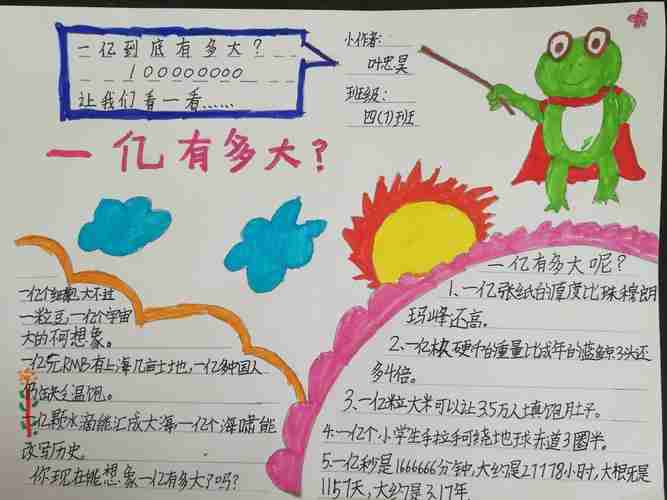 一亿到底有多大？
100000000
让我们看一看……
小作者：
叶忠昊
班级：
四(1)班
一亿有多大？
一亿个细胞,大不过
一粒豆,一亿个宇宙
大的不可想象。
一亿元RMB有上海几亩土地，一亿多中国人
仍缺乏温饱。
一亿颗水滴能汇成大海一亿个海啸能
改写历史。
你现在能想象一亿有多大？吗？
一亿有多大呢？
1、一亿张纸的厚度比珠穆朗
玛峰还高。
2、一亿枚硬币的重量比成年的蓝鲸3头还
多4倍。
3、一亿粒大米可以让3.5万人填饱肚子。
4.一亿个小学生手拉手可绕地球赤道3圈半。
5.一亿秒是1666666分钟,大约是27778小时,大概是
1157天,大约是3.17年。